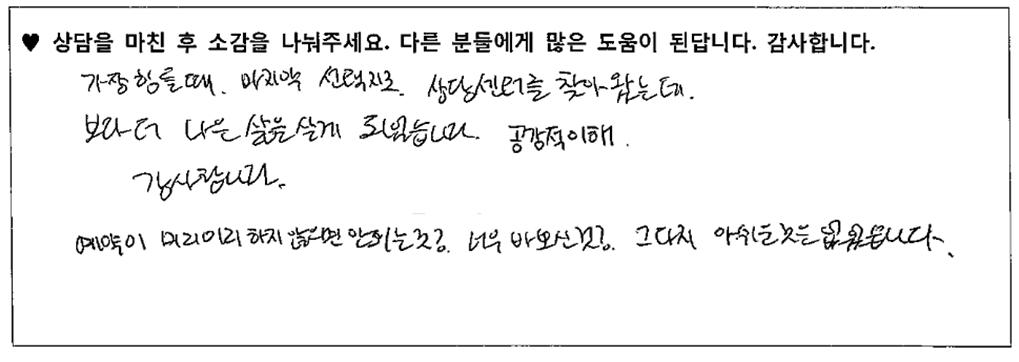 ♥ 상담을 마친 후 소감을 나눠주세요. 다른 분들에게 많은 도움이 된답니다. 감사합니다.
가장 힘들때. 마지막 선택지로. 상담센터를 찾아왔는데.
보다 더 나은 삶을 살게 되었습니다. 공감적이해.
감사합니다.
예약이 미리미리 하지 않으면 안되는것강. 너무 바쁘신것강. 그다지 아쉬운것은 없었읍니다.